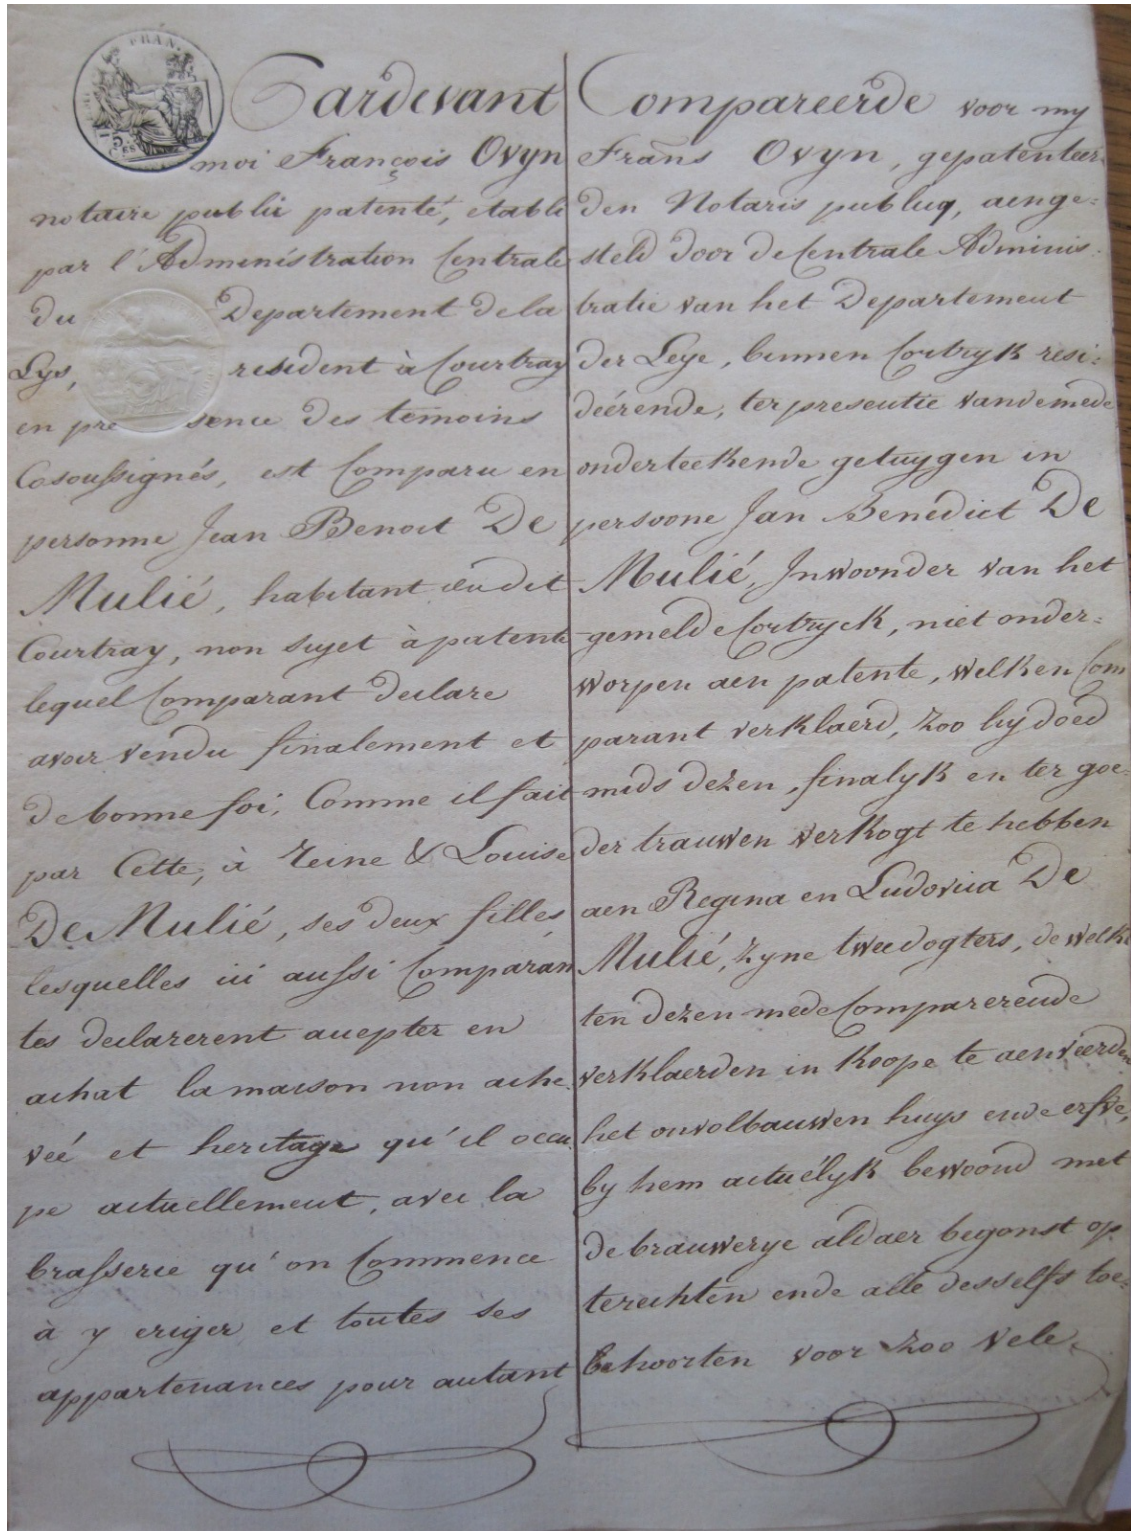 Pardevant
moi François Ovyn
notaire public patenté, etabli
par l'Administration Centrale
du Departement de la
Lys, resident à Courtray
en pre sence des temoins
Cosoussignés, est Comparu en
personne Jean Benoit De
Mulié, habitant dudit
Courtray, non sujet à patente
lequel Comparant declare
avoir vendu finalement et
de bonne foi, Comme il fait
par Cette, à Reine & Louise
De Mulié, ses deux filles,
lesquelles ici aussi Comparan
tes declarerent accepter en
achat la maison non ache
veé et heritage qu'il occu
pe actuellement, avec la
brasserie qu'on Commence
à y eriger et toutes ses
appartenances pour autant
Compareerde voor my
Frans Ovyn, gepatenteer
den Notaris publuq, aenge=
steld door de Centrale Adminis
tratie van het Departement
der Leye, binnen Cortryk resi=
deérende, ter presentie van de mede
onderteekende getuygen in
persoone Jan Benedict De
Mulié, Inwoonder van het
gemelde Cortryck, niet onder=
worpen aen patente, welken Com
parant verklaerd, zoo hy doed
mids dezen, finalyk en ter goe=
der trauwen verkogt te hebben
aen Regina en Ludovica De
Mulié, zyne twee dogters, de welke
ten dezen mede Comparerende
verklaerden in koope te aenvéerden
het onvolbauwen huys ende erfve,
by hem actuélyk bewoond met
de brauwerye aldaer begonst op
terechten ende alle desselfs toe=
behoorten voor zoo vele